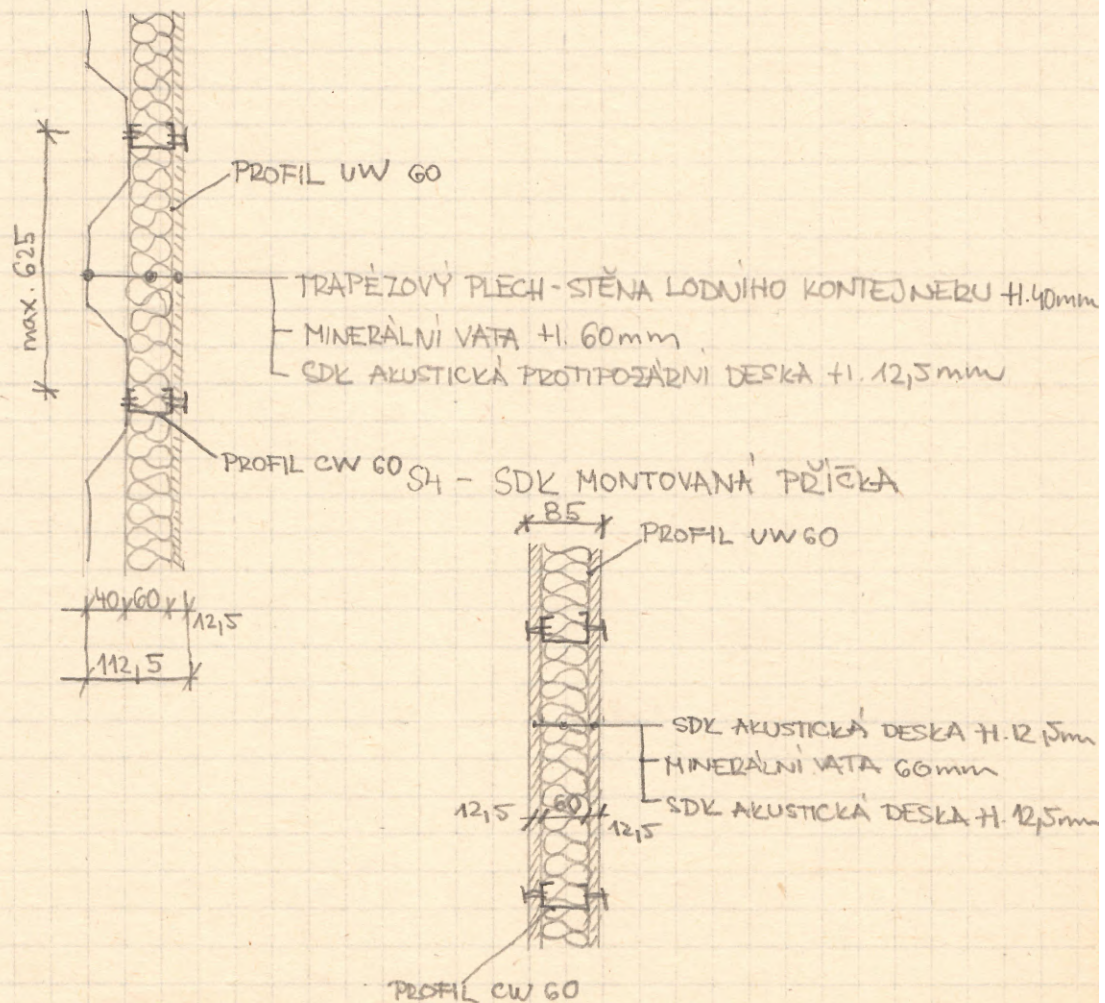 PROFIL UW 60
max. 625
TRAPÉZOVÝ PLECH-STĚNA LODNÍHO KONTEJNERU tl. 40mm
MINERÁLNÍ VATA tl. 60mm
SDK AKUSTICKÁ PROTIPOŽÁRNÍ DESKA tl. 12,5mm
PROFIL CW 60
40 60 12,5
112,5
S4 - SDK MONTOVANÁ PŘÍČKA
85
PROFIL UW 60
SDK AKUSTICKÁ DESKA tl. 12,5mm
MINERÁLNÍ VATA 60mm
SDK AKUSTICKÁ DESKA tl. 12,5mm
12,5 60 12,5
PROFIL CW 60